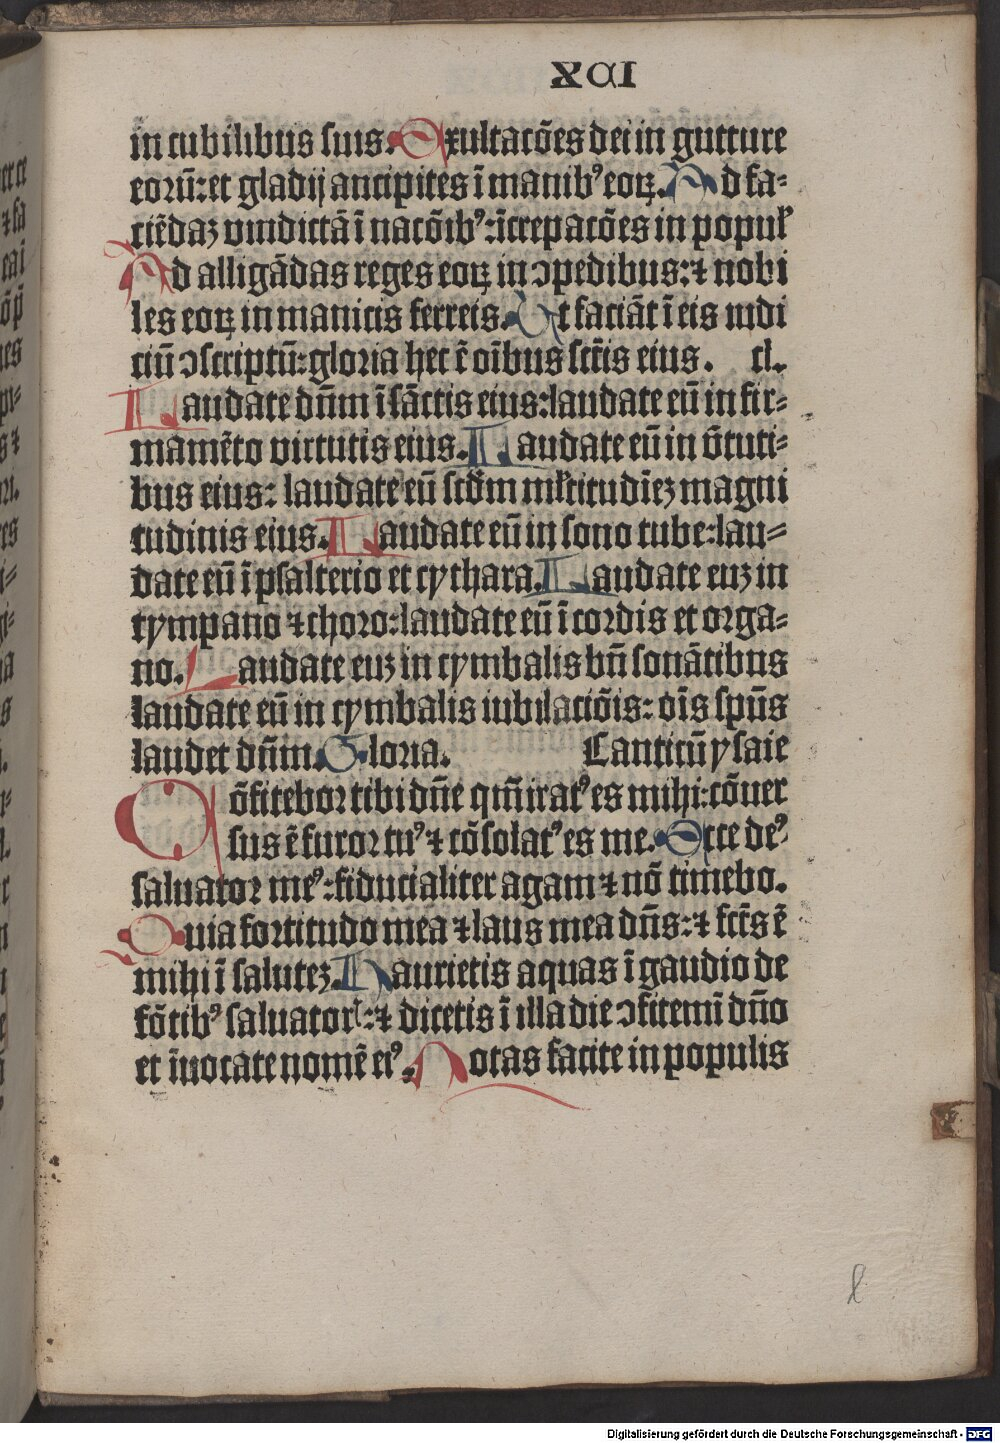 XCI
in cubilibus suis. Exultacões dei in gutture
eorũ: et gladij ancipites ĩ manibꝰ eoꝝ. Ad fa⸗
ciẽdaz vindictã ĩ nacõibꝰ: ĩcrepacões in popul̉
Ad alligãdas reges eoꝝ in ꝯpedibus: ⁊ nobi
les eoꝝ in manicis ferreis. Ut faciãt ĩ eis iudi
ciũ ꝯscriptũ: gloria hec ẽ oĩbus sctĩs eius. cl.
Laudate dñm ĩ sãctis eius: laudate eũ in fir⸗
mamẽto virtutis eius. Laudate eũ in ṽtuti⸗
bus eius: laudate eũ scd̃m ml̃titudĩez magni
tudinis eius. Laudate eũ in sono tube: lau⸗
date eũ ĩ psalterio et cythara. Laudate euz in
tympano ⁊ choro: laudate eũ ĩ cordis et orga⸗
no. Laudate euz in cymbalis bñ sonãtibus
laudate eũ in cymbalis iubilaciõis: oĩs spũs
laudet dñm. Gloria. Canticũ ysaie
Cõfitebor tibi dñe qm̃ iratꝰ es mihi: cõuer
sus ẽ furor tuꝰ ⁊ cõsolatꝰ es me. Ecce deꝰ
saluator meꝰ: fiducialiter agam ⁊ nõ timebo.
Quia fortitudo mea ⁊ laus mea dñs: ⁊ fct̃s ẽ
mihi ĩ salutez. Haurietis aquas ĩ gaudio de
fõtibꝰ saluator̃: ⁊ dicetis ĩ illa die ꝯfitemĩ dño
et ĩuocate nomẽ eiꝰ. Notas facite in populis
l
Digitalisierung gefördert durch die Deutsche Forschungsgemeinschaft - DFG